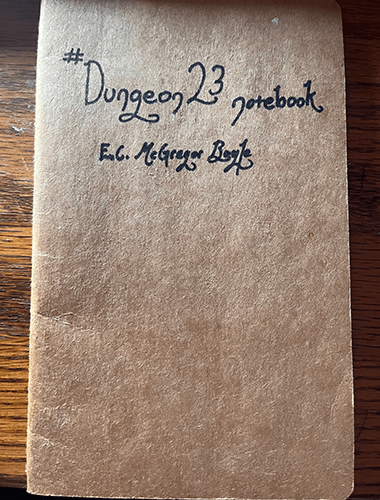 #Dungeon23 notebook
E.C. McGregor Boyle